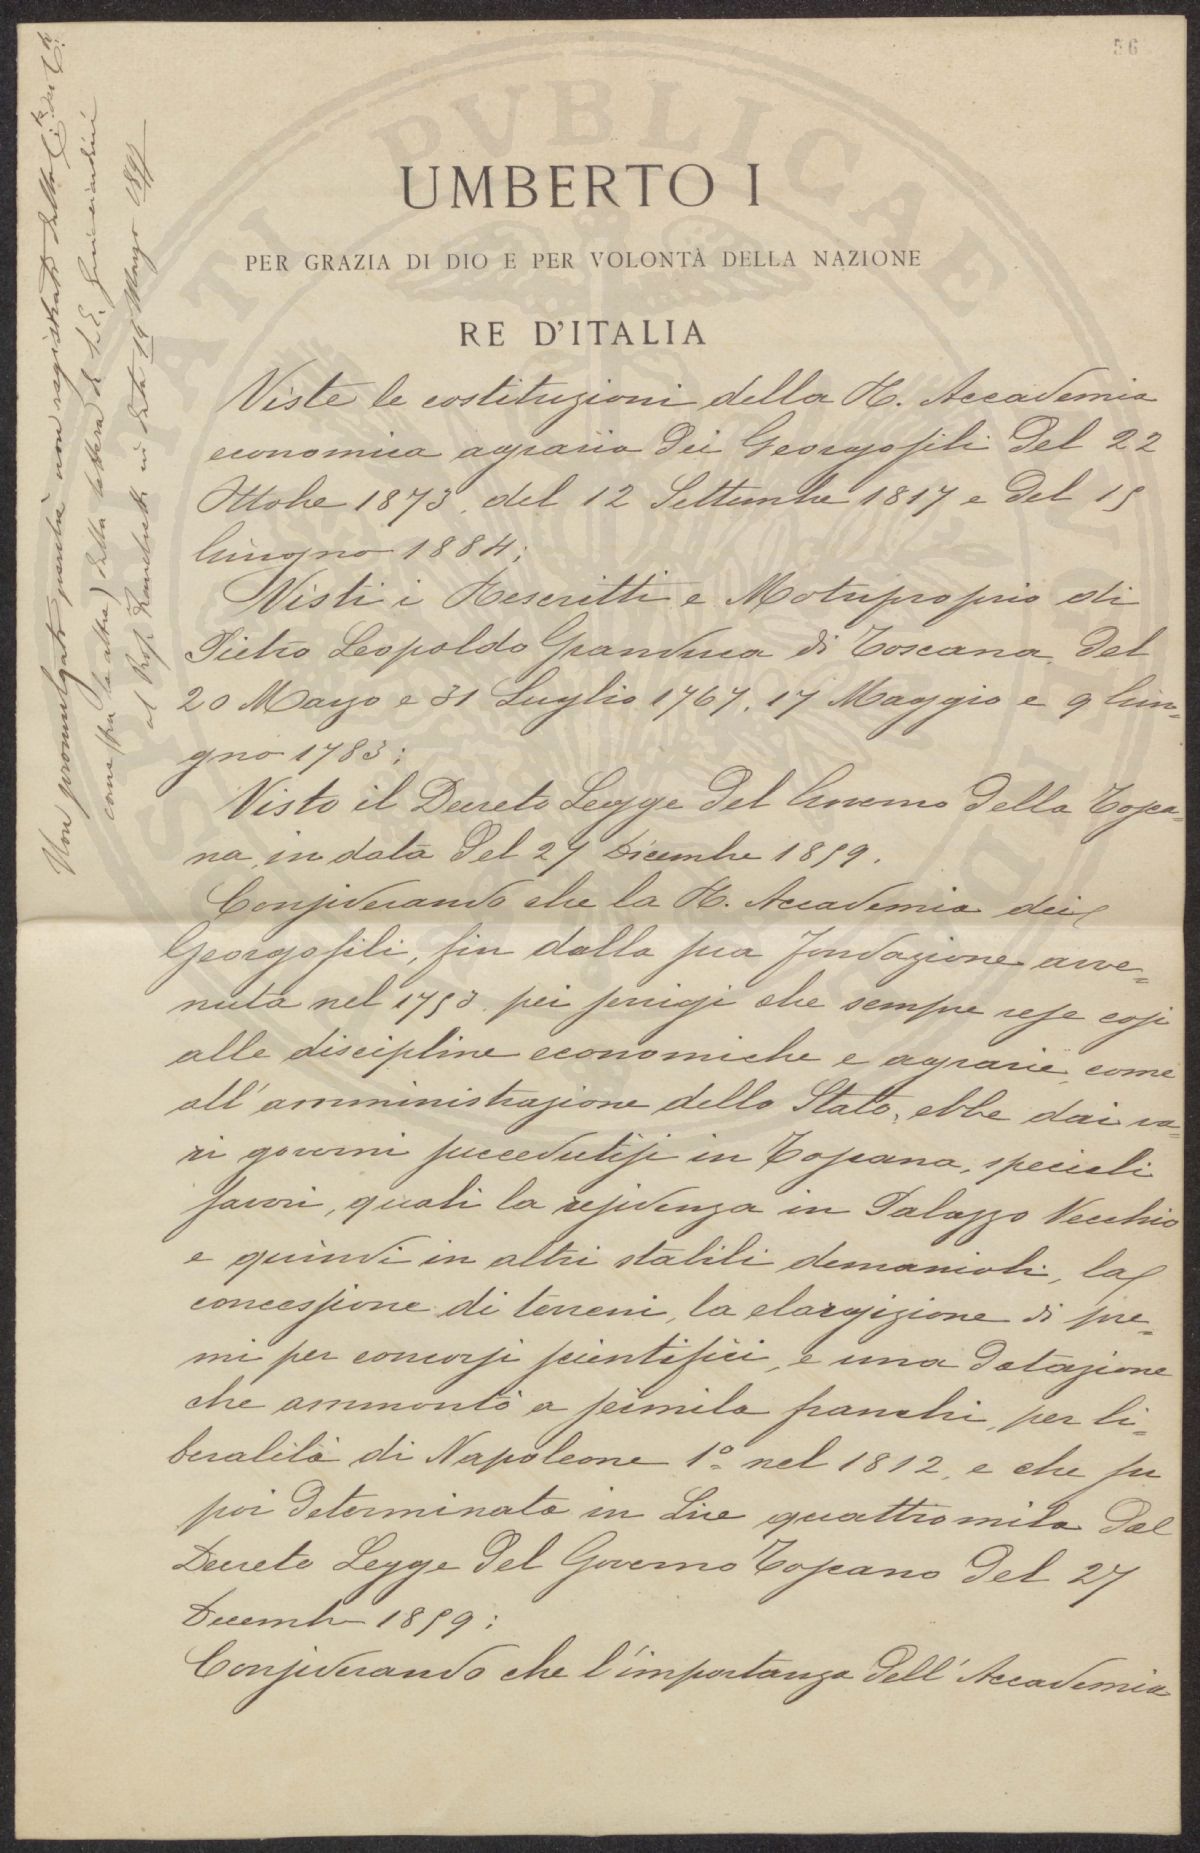 56
UMBERTO I
PER GRAZIA DI DIO E PER VOLONTÀ DELLA NAZIONE
RE D'ITALIA
Viste le costituzioni della R. Accademia
economica agraria dei Georgofili del 22
Ottobre 1873, del 12 Settembre 1817 e del 15
Giugno 1884;
Visti i Rescritti e Motuproprio di
Pietro Leopoldo Granduca di Toscana del
20 Marzo e 31 Luglio 1767, 17 Maggio e 9 Giu=
gno 1783;
Visto il Decreto Legge del Governo della Tosca=
na in data del 27 Dicembre 1859.
Considerando che la R. Accademia dei
Georgofili, fin dalla sua fondazione avve=
nuta nel 1753 pei servigi che sempre rese così
alle discipline economiche e agrarie come
all'amministrazione dello Stato, ebbe dai va=
ri governi succedutisi in Toscana, speciali
favori, quali la residenza in Palazzo Vecchio
e quindi in altri stabili demaniali, la
concessione di terreni, la elargizione di pre=
mi per concorsi scientifici, e una dotazione
che ammontò a seimila franchi, per li=
beralità di Napoleone 1º nel 1812, e che fu
poi determinata in Lire quattromila dal
Decreto Legge del Governo Toscano del 27
Decembre 1859;
Considerando che l'importanza dell'Accademia
Non promulgato perchè non registrato dalla C.te dei C.ti
come (fra le altre) della lettera di S.E. Guicciardini
al Prof. in data 14 Marzo 1897
SPQR
PVBLICAE